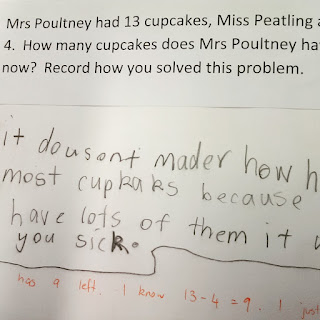 Mrs Poultney had 13 cupcakes, Miss Peatling a
4. How many cupcakes does Mrs Poultney ha
now? Record how you solved this problem.
it dousont mader how h
most cupkaks because
have lots of them it
you sick.
has 9 left. I know 13-4=9. I just